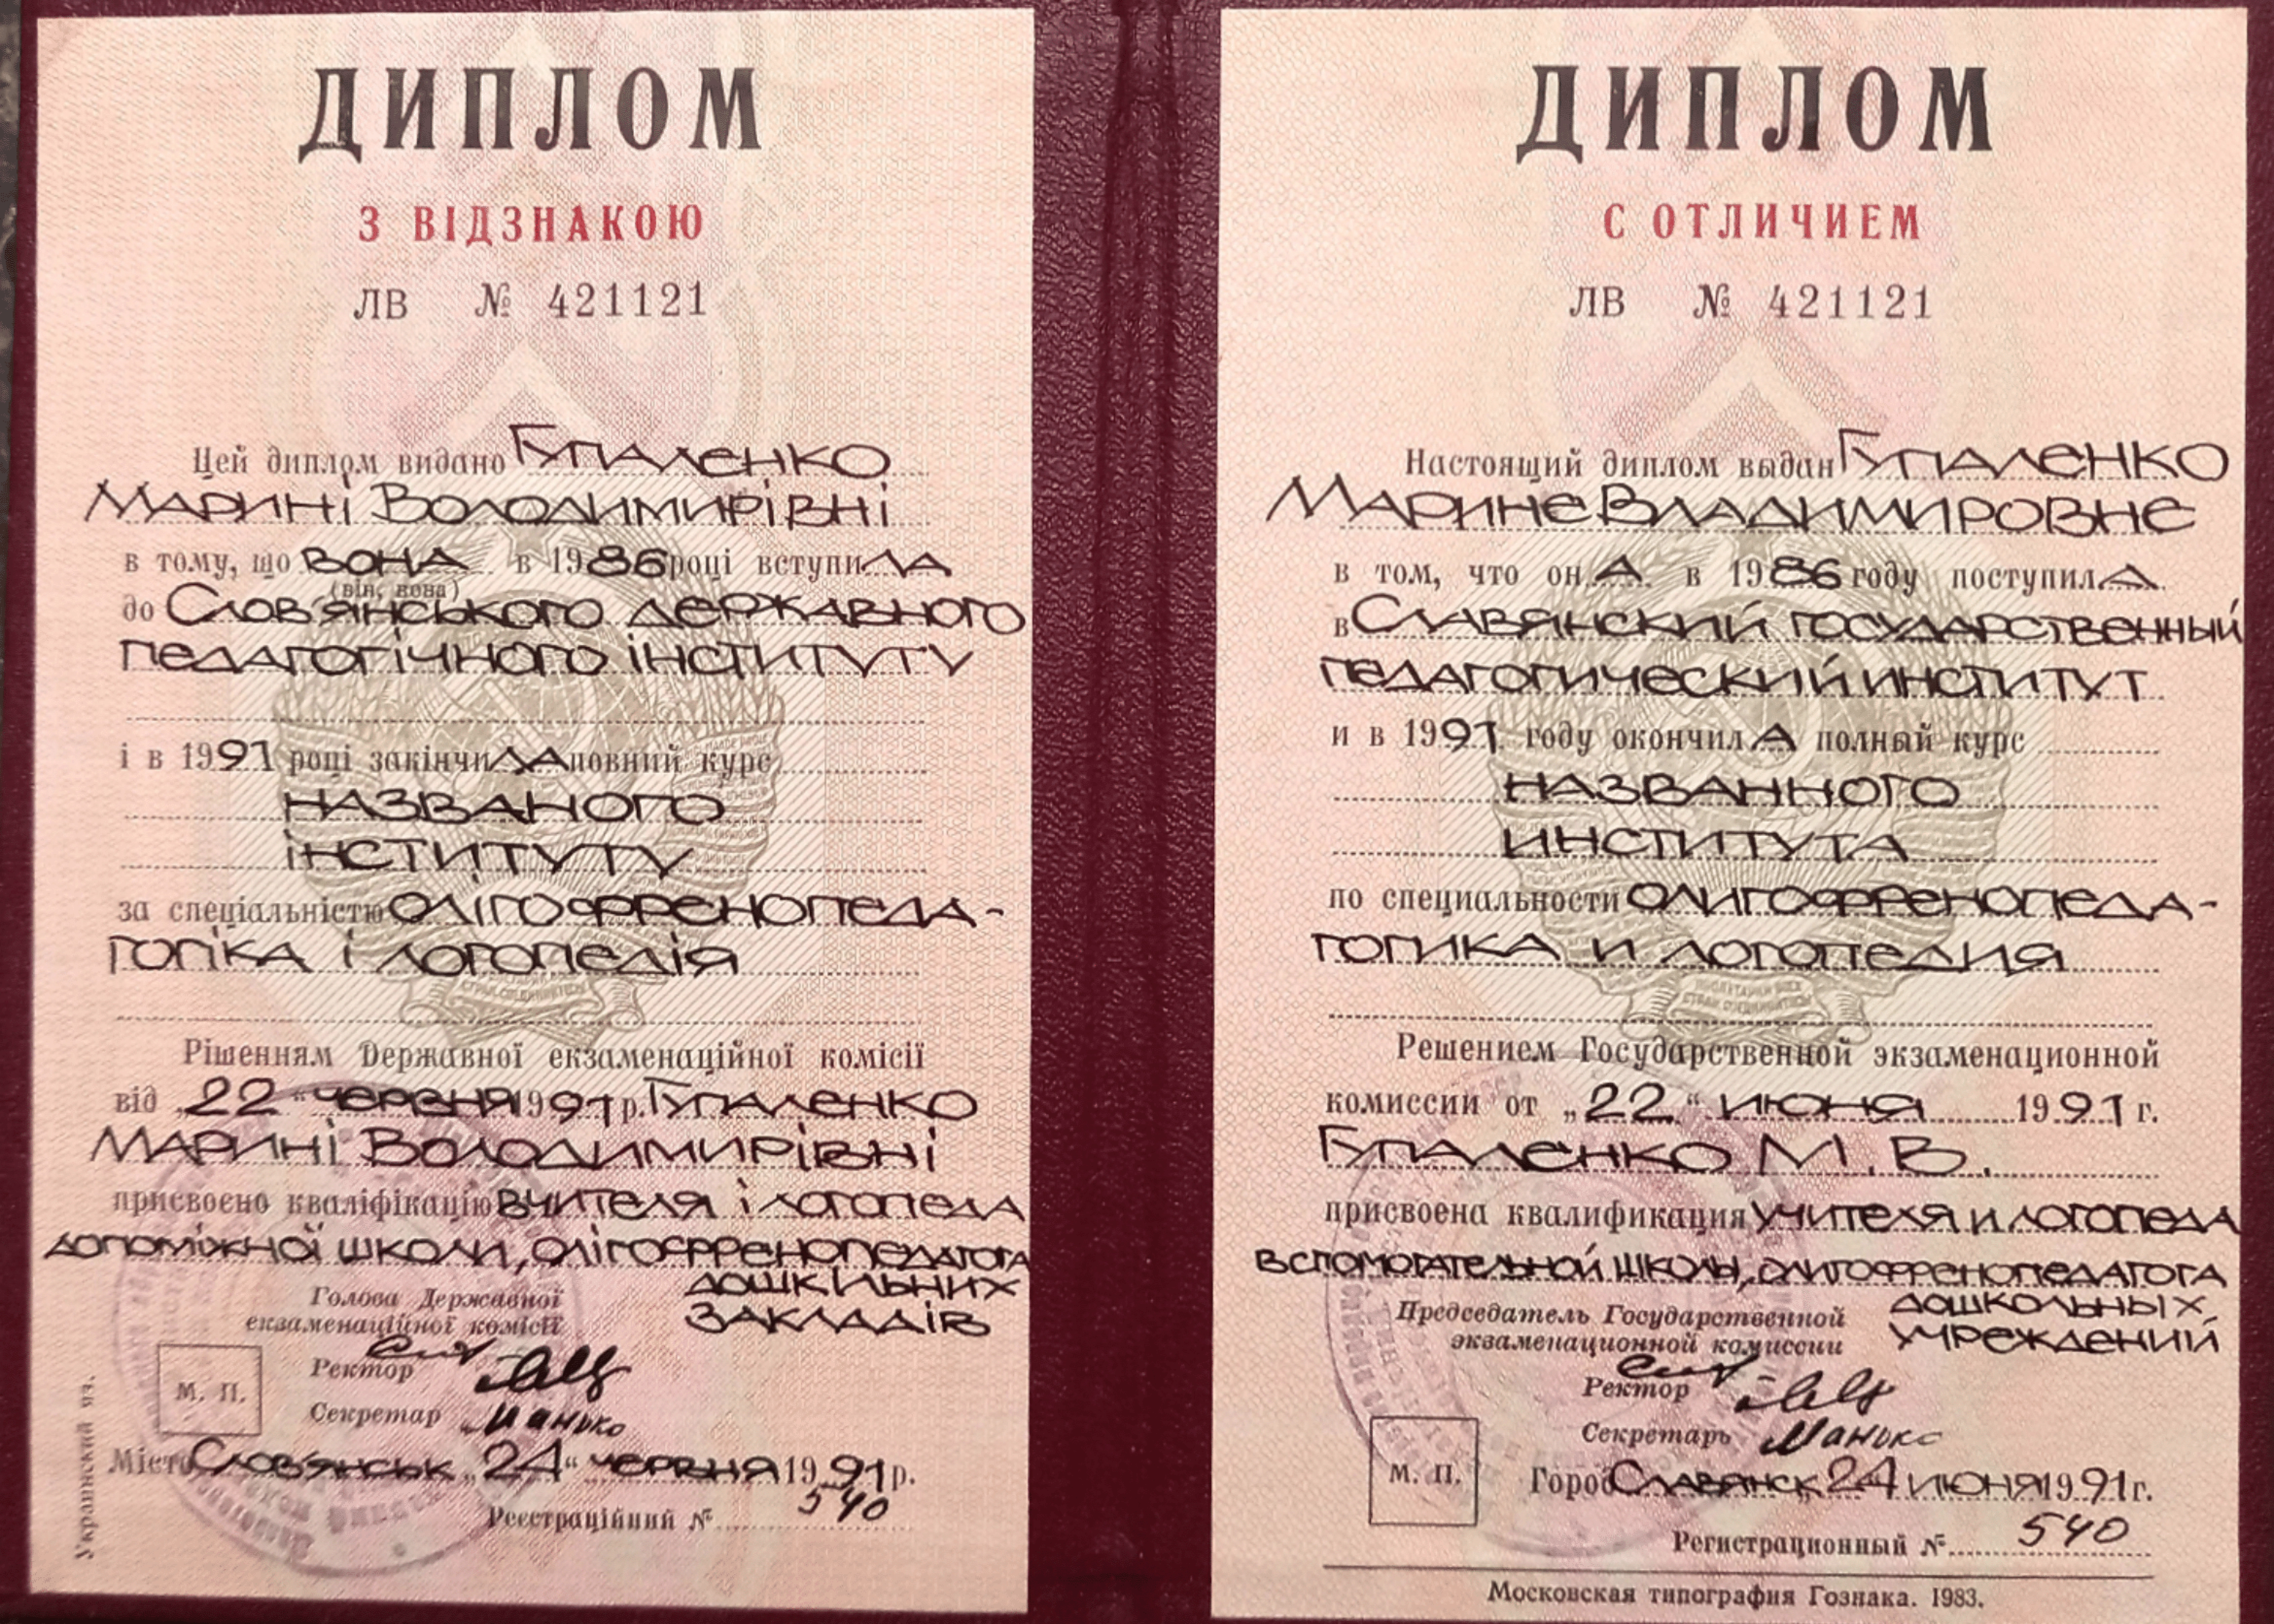 ДИПЛОМ
З ВІДЗНАКОЮ
ЛВ № 421121
Цей диплом видано Гупаленко
Марині Володимирівні
в тому, що вона в 1986 році вступила
(він, вона)
до Слов'янського державного
педагогічного інституту
і в 1991 році закінчила повний курс
названого
інституту
за спеціальністю олігофренопеда-
гогіка і логопедія
Рішенням Державної екзаменаційної комісії
від „22“ червня 1991 р. Гупаленко
Марині Володимирівні
присвоєно кваліфікацію вчителя і логопеда
допоміжної школи, олігофренопедагога
дошкільних
закладів
Голова Державної
екзаменаційної комісії
Ректор
Секретар Манько
М. П.
Місто Слов'янськ „24“ червня 1991 р.
Реєстраційний № 540
Украинский яз.
ДИПЛОМ
С ОТЛИЧИЕМ
ЛВ № 421121
Настоящий диплом выдан Гупаленко
Марине Владимировне
в том, что она в 1986 году поступила
в Славянский государственный
педагогический институт
и в 1991 году окончила полный курс
названного
института
по специальности олигофренопеда-
гогика и логопедия
Решением Государственной экзаменационной
комиссии от „22“ июня 1991 г.
Гупаленко М. В.
присвоена квалификация учителя и логопеда
вспомогательной школы, олигофренопедагога
дошкольных
учреждений
Председатель Государственной
экзаменационной комиссии
Ректор
Секретарь Манько
М. П.
Город Славянск „24“ июня 1991 г.
Регистрационный № 540
Московская типография Гознака. 1983.